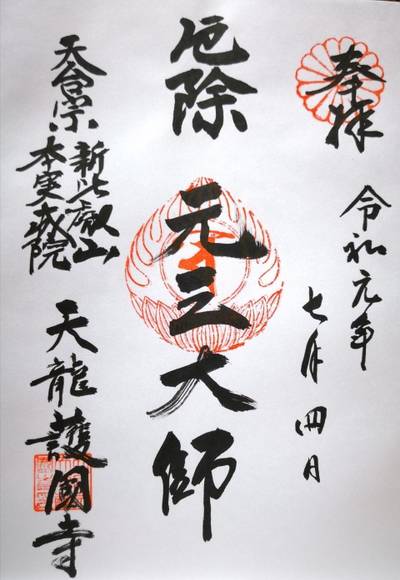 奉拝
令和元年
七月四日
厄除
元三大師
天台宗
新比叡山
本実成院
天龍護國寺